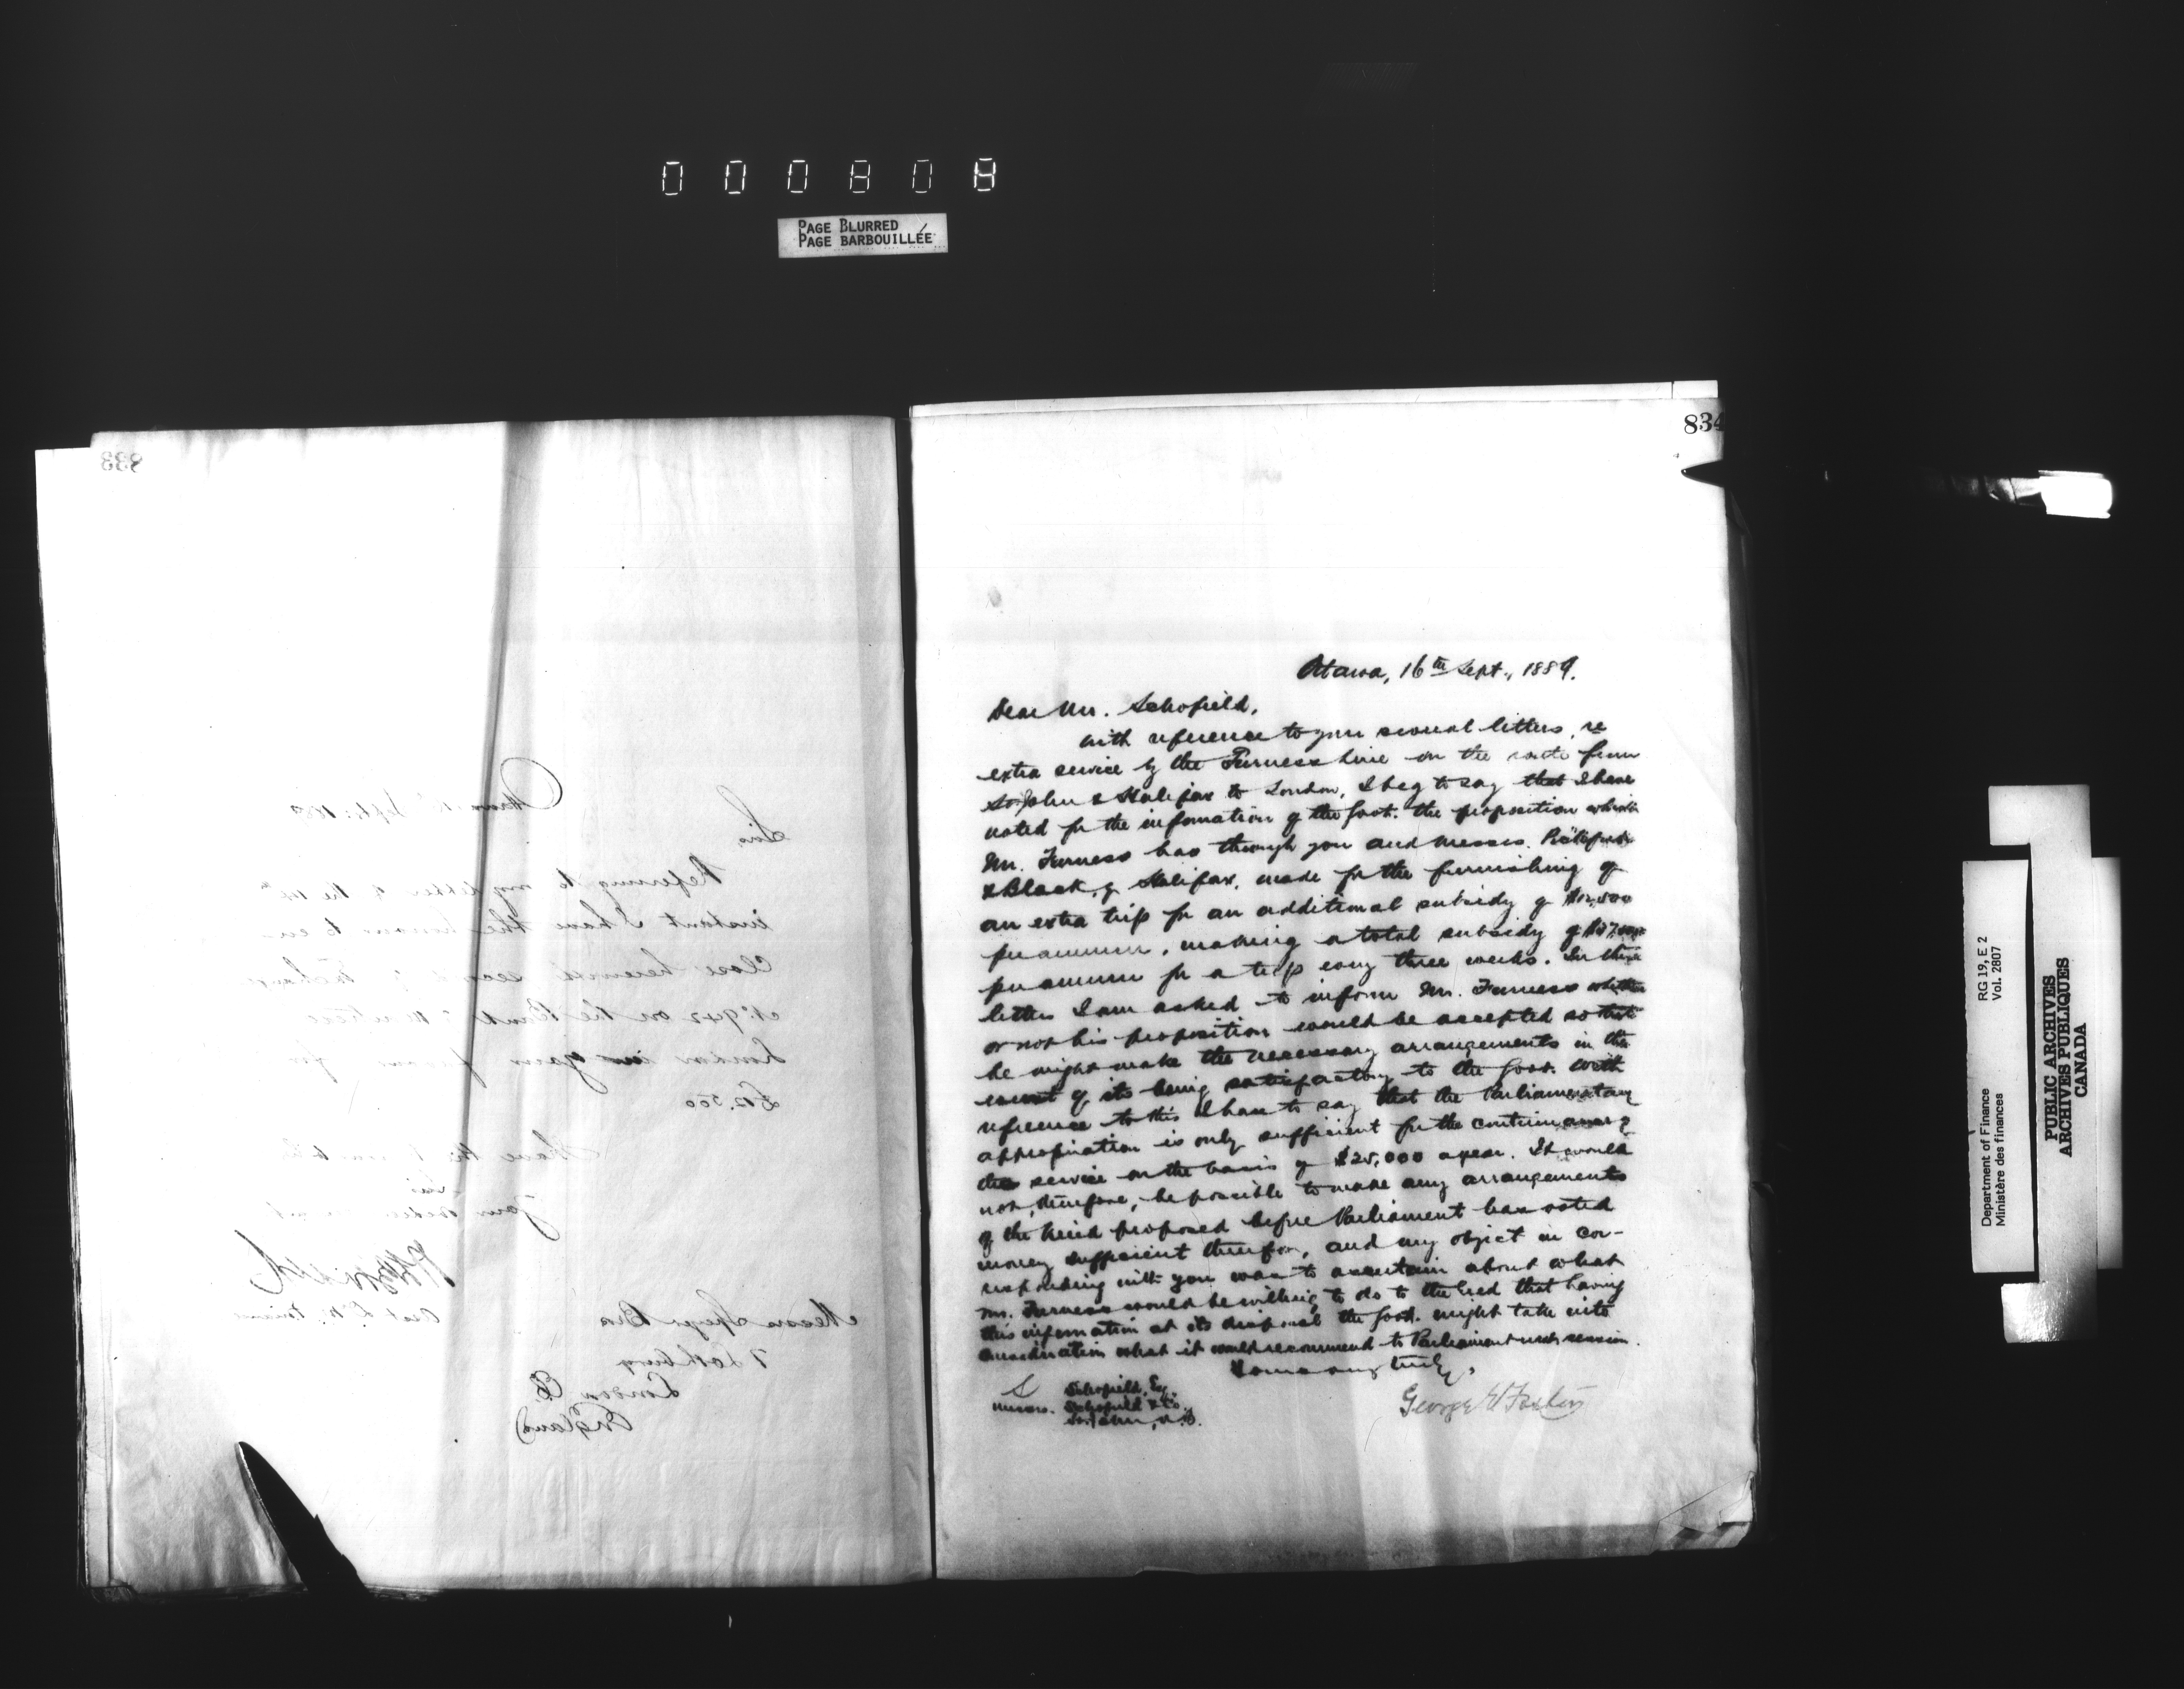 000808
PAGE BLURRED
PAGE BARBOUILLÉE
833
Sir
Referring to my letter of the
instant I have the honour to en-
close herewith Exchange
on the Bank of Montreal
London in your favour for
£12,500
Messrs Speyer Bros
7 Lothbury
London E.C.
England
834
Ottawa, 16th Sept., 1889.
Dear Mr. Schofield,
With reference to your several letters, re
extra service by the Furness Line on the route from
St. John & Halifax to London, I beg to say that I have
noted for the information of the Govt. the proposition which
Mr. Furness has through you and Messrs.
& Black, of Halifax, made for the furnishing of
an extra trip for an additional subsidy of $12,500
per annum, making a total subsidy of
per annum for a trip every three weeks. In these
letters I am asked to inform Mr. Furness whether
or not his proposition would be accepted so that
he might make the necessary arrangements in the
event of its being satisfactory to the Govt. With
reference to this I have to say that the Parliamentary
appropriation is only sufficient for the continuance of
the service on the basis of $25,000 a year. It would
not, therefore, be possible to make any arrangements
of the kind proposed before Parliament has voted
money sufficient therefor, and my object in cor-
responding with you was to ascertain about what
Mr. Furness would be willing to do to the end that having
this information at its disposal the Govt. might take into
consideration what it would recommend to Parliament next session.
Yours very truly,
George E Foster
S Schofield, Esq.
Messrs. Schofield & Co.
St. John, N.B.
Department of Finance RG 19, E 2
Ministère des finances Vol. 2807
PUBLIC ARCHIVES
ARCHIVES PUBLIQUES
CANADA